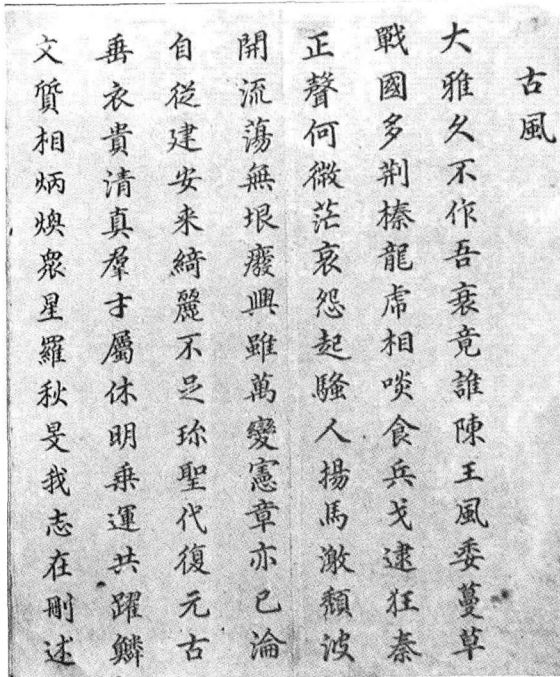 古風
大雅久不作吾衰竟誰陳王風委蔓草
戰國多荆榛龍虎相啖食兵戈逮狂秦
正聲何微茫哀怨起騷人揚馬激頹波
開流蕩無垠廢興雖萬變憲章亦已淪
自從建安来綺麗不足珎聖代復元古
垂衣貴清真羣才屬休明乗運共躍鱗
文質相炳煥衆星羅秋旻我志在刪述